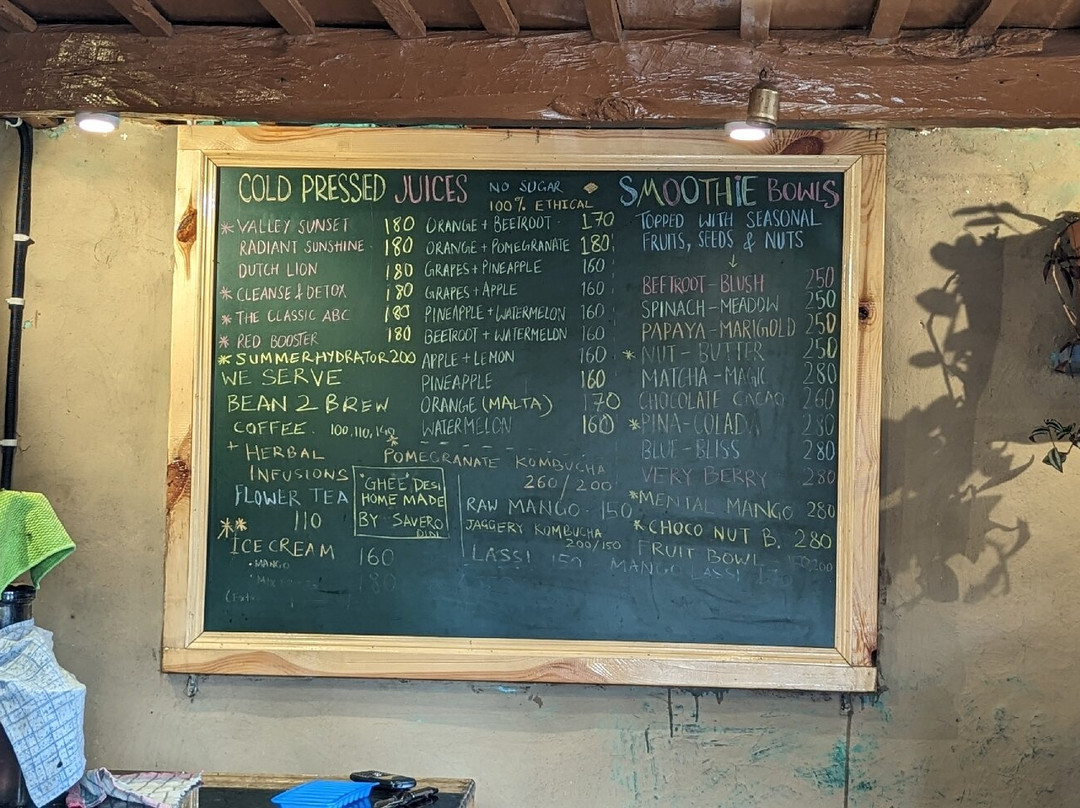 COLD PRESSED JUICES
* VALLEY SUNSET 180
RADIANT SUNSHINE 180
DUTCH LION 180
* CLEANSE & DETOX 180
* THE CLASSIC ABC 180
* RED BOOSTER 180
* SUMMER HYDRATOR 200
WE SERVE
BEAN 2 BREW
COFFEE. 100, 110, 140
+ HERBAL
INFUSIONS
FLOWER TEA
110
ICE CREAM 160
• MANGO
180
NO SUGAR
100% ETHICAL
ORANGE + BEETROOT 170
ORANGE + POMEGRANATE 180
GRAPES + PINEAPPLE 160
GRAPES + APPLE 160
PINEAPPLE + WATERMELON 160
BEETROOT + WATERMELON 160
APPLE + LEMON 160
PINEAPPLE 160
ORANGE (MALTA) 170
WATERMELON 160
* POMEGRANATE KOMBUCHA
260/200
"GHEE" DESI
HOME MADE
BY SAVERO
DIDI
RAW MANGO - 150
JAGGERY KOMBUCHA
200/150
LASSI 150
MANGO LASSI
SMOOTHiE BOWLS
TOPPED WITH SEASONAL
FRUITS, SEEDS & NUTS
↓
BEETROOT - BLUSH 250
SPINACH - MEADOW 250
PAPAYA - MARIGOLD 250
* NUT - BUTTER 250
MATCHA - MAGIC 280
CHOCOLATE CACAO 260
* PINA - COLADA 280
BLUE - BLISS 280
VERY BERRY 280
* MENTAL MANGO 280
* CHOCO NUT B. 280
FRUIT BOWL